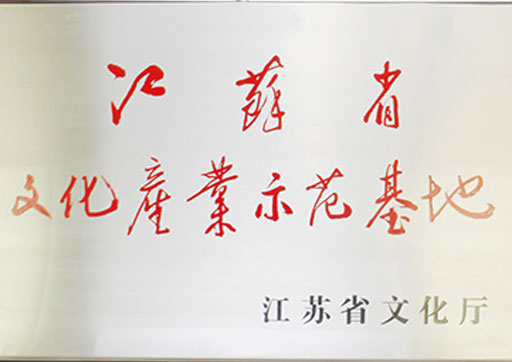 江蘇省
文化産業示范基地
江苏省文化厅